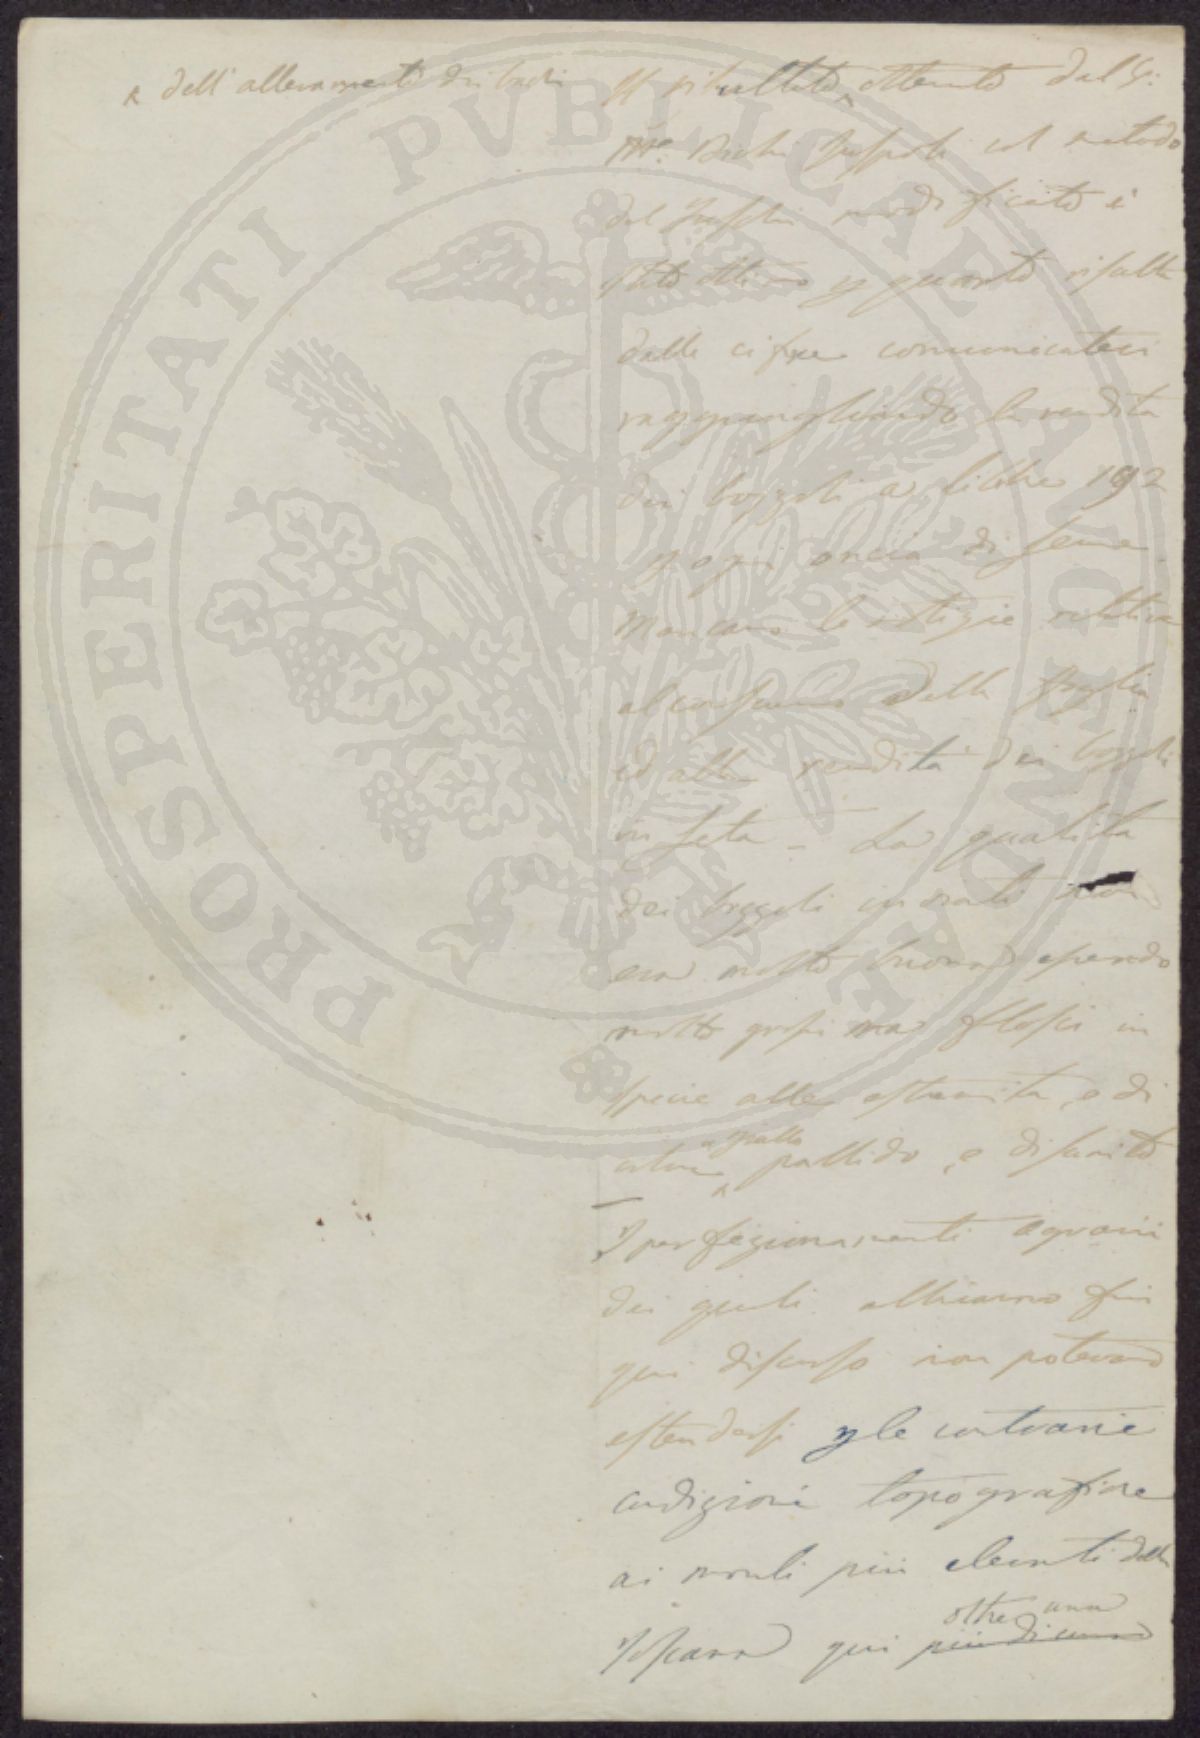 ^ dell'allevamento dei bachi
Il risultato ^ ottenuto dal S:
Mse. Bichi Ruspoli col metodo
del modificato è
stato ottimo p quanto risulta
dalle cifre comunicateci
ragguagliando la rendita
dei bozzoli a libbre 192
p ogni oncia di seme
Mancano le notizie relative
al consumo della foglia
ed alla rendita dei bozzoli
in seta _ La qualità
dei bozzoli inviati non
era molto buona essendo
molto grossi ma flosci in
specie alle estremità, e di
colore ^ giallo pallido, e
I perfezionamenti agrarii
dei quali abbiamo fin
qui discorso non potevano
estendersi p le contrarie
condizioni topografiche
ai monti più elevati della
Toscana qui più di una
oltre una
PROSPERITATI PUBLICAE AUGENDAE